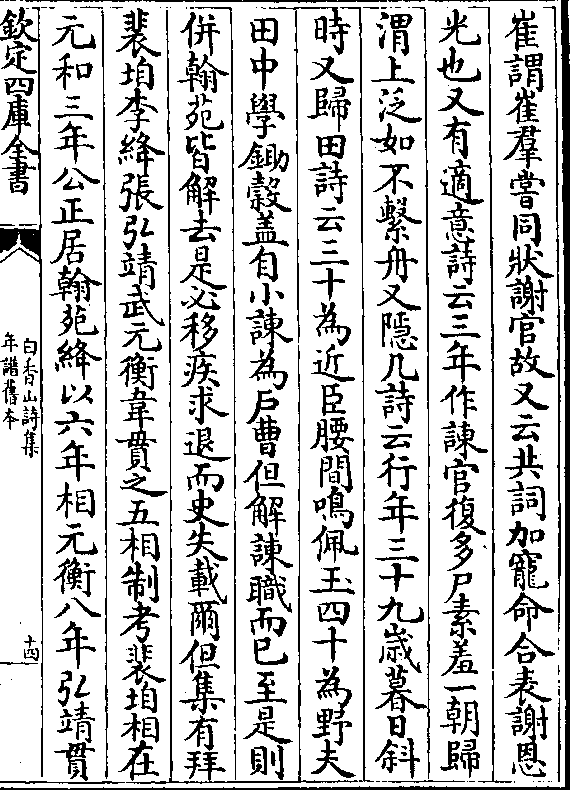 崔謂崔羣嘗同狀謝官故又云共詞加寵命合表謝恩
光也又有適意詩云三年作諫官復多尸素羞一朝歸
渭上泛如不繫舟又隠几詩云行年三十九歲暮日斜
時又歸田詩云三十為近臣腰間鳴佩玉四十為野夫
田中學鋤穀盖自小諫為戶曹但解諫職而已至是則
併翰苑皆解去是必移疾求退而史失載爾但集有拜
裴垍李絳張弘靖武元衡韋貫之五相制考裴垍相在
元和三年公正居翰苑絳以六年相元衡八年弘靖貫
欽定四庫全書
白香山詩集
年譜舊本
十四